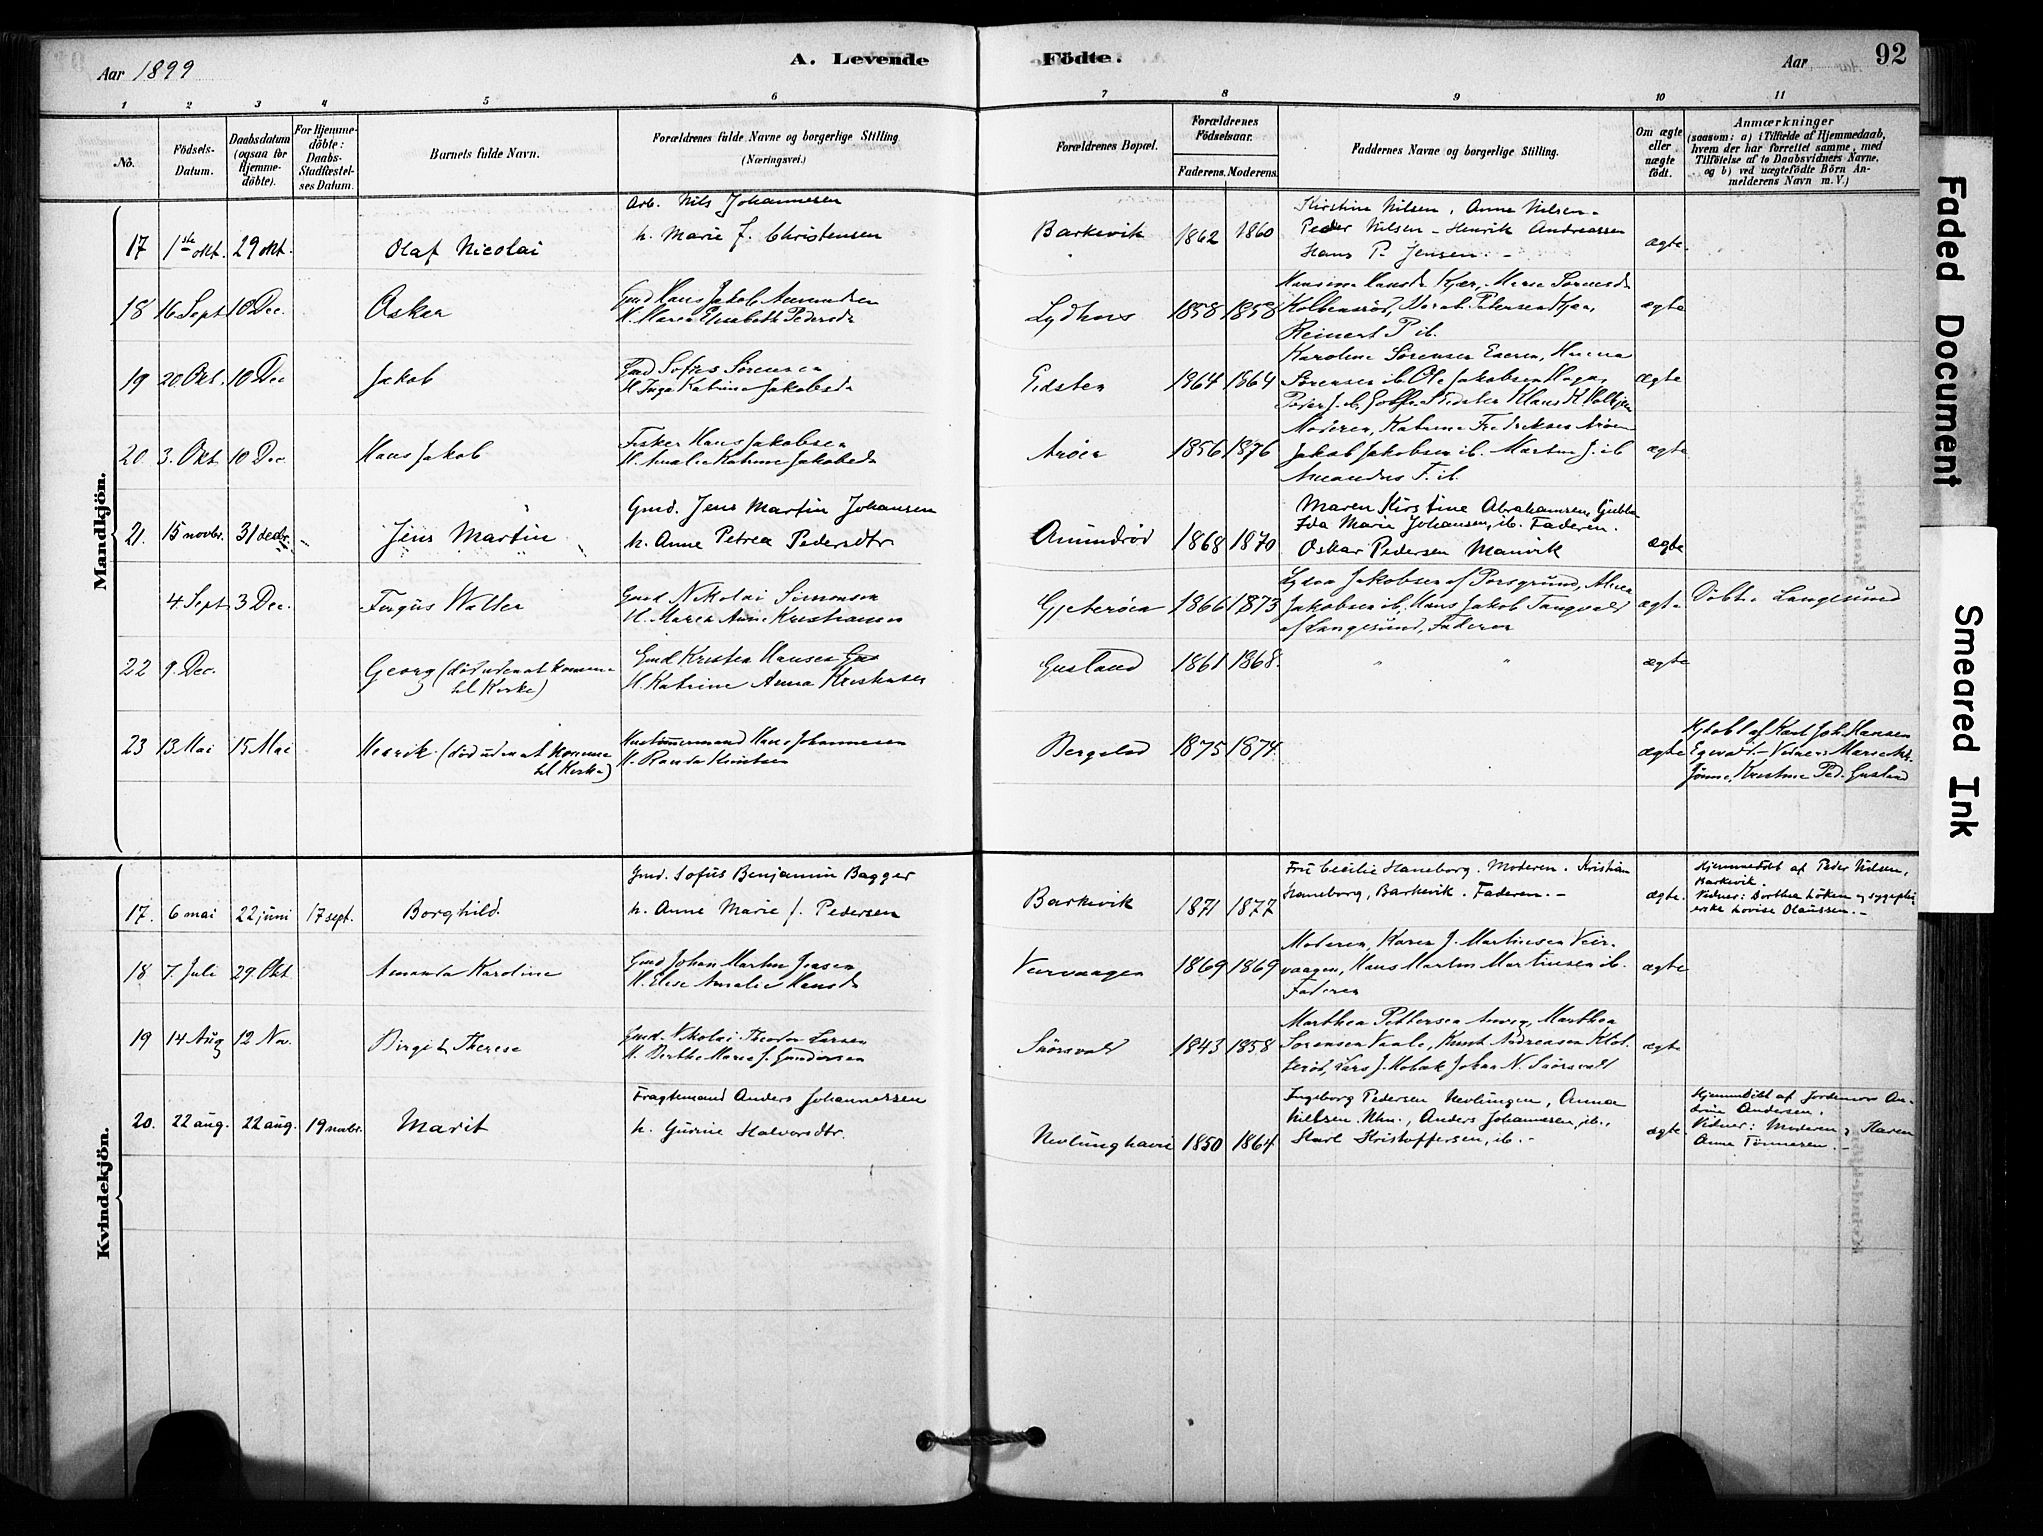 Aar 1899
A. Levende
Födte.
Aar
92
1 2 3 4 5 6 7 8 9 10 11
No.
Födsels-
Datum.
Daabsdatum
(ogsaa for
Hjemme-
döbte).
For Hjemme-
döbte:
Daabs-
Stadfæstel-
ses Datum.
Barnets fulde Navn.
Forældrenes fulde Navne og borgerlige Stilling.
(Næringsvei.)
Forældrenes Bopæl.
Forældrenes
Födselsaar.
Faderens. Moderens.
Faddernes Navne og borgerlige Stilling.
Om ægte
eller
uægte
födt.
Anmærkninger
(saasom: a) i Tilfælde af Hjemmedaab,
hvem der har forrettet samme, med
Tilföielse af to Daabsvidners Navne,
og b) ved uægtefödte Börn An-
melderens Navn m. V.)
Mandkjön.
17 1ste okt. 29 okt. Olaf Nicolai
Arb. Nils Johannesen
h. Marie f. Christensen
Barkevik 1862 1860
Kirstine Nilsen, Anne Nilsen
Peder Nilsen - Henrik Andreassen
Hans P. Jensen
ægte
18 16 Sept 10 Dec. Oskar
Gmd Hans Jakob Amundsen
H. Maren Elisabeth Pedersdr
1858 1858
Reinert P. ib.
ægte
19 20 Okt. 10 Dec Jakob
Gmd Sofus Sørensen
H. Inga Katrine Jakobsdr
1864 1864
Karoline Sørensen
Sørensen ib. Ole Jakobsen
ægte
20 3. Okt 10 Dec Hans Jakob
Fisker Hans Jakobsen
H. Amalie Katrine Jakobsdr
Arøen 1856 1876
Moderen, Katrine Fredriksen Arøen
Jakob Jakobsen ib. Martin J. ib
Amandus F. ib.
ægte
21. 15 novbr. 31 decbr. Jens Martin
Gmd. Jens Martin Johansen
h. Anne Petrea Pedersdtr
Amundrød 1868 1870
Maren Kirstine Abrahamsen,
Ida Marie Johansen, ib. Faderen.
Oskar Pedersen Manvik
ægte
4 Sept 3 Dec. Fergus Walter
Gmd Nikolai Simonsen
H. Maren Anne Kristiansen
Gjeterøen 1866 1873
Jakobsen af Porsgrund,
Jakobsen ib. Hans Jakob Tangvald
af Langesund, Faderen
ægte Döbt i Langesund
22 9 Dec. Georg (död uden at komme
til Kirke)
Gmd Kristen Hansen
H. Katrine Anna Kristensen
Gustad 1861 1868.
" "
ægte
23 13 Mai 15 Mai Henrik (död uden at komme
til Kirke)
Hustømmermand Hans Johannesen
H. Randa Knutsen
1875 1874
ægte
Hjdöbt af Karl Joh. Hansen
Kristine Ped. Gustad
Kvindekjön.
17. 6 mai 22 juni 17 sept. Borghild.
Gmd. Sofus Benjamin Bagger
h. Anne Marie f. Pedersen
Barkevik 1871 1877
Fru Cecilie Haneborg. Moderen. Kristian
Haneborg, Barkevik. Faderen.
ægte.
Hjemmedöbt af Peder Nilsen,
Barkevik.
Vidner: Dorthea Löken og sygeplei
erske Lovise Olaussen.
18 7. Juli 29 Okt. Amanda Karoline
Gmd Johan Martin Jensen
H. Else Amalie Hansdr
Veirvaagen 1869 1869
Moderen, Karen J. Martinsen Veir-
vaagen, Hans Martin Martinsen ib.
Faderen
ægte
19 14 Aug 12 Nov. Birgit Therese
Gmd. Nikolai Theodor Larsen
H. Berthe Marie f. Gundersen
1843 1858
Marthea Pettersen Marthea
Sørensen Knut Andreasen
Johan N.
ægte
20. 22 aug. 22 aug. 19 novbr. Marit
Fragtemand Anders Johannessen
h. Gurine Halvorsdtr.
Nevlunghavn 1850 1864
Ingeborg Pedersen Nevlungen, Anna
Nielsen Nhn., Anders Johannesen, ib.,
Karl Kristoffersen, ib.
ægte.
Hjemmedöbt af Jordemor An-
drine Andersen.
Vidner: Moderen og Karen
Anne Tönnesen.
Faded Document
Smeared Ink